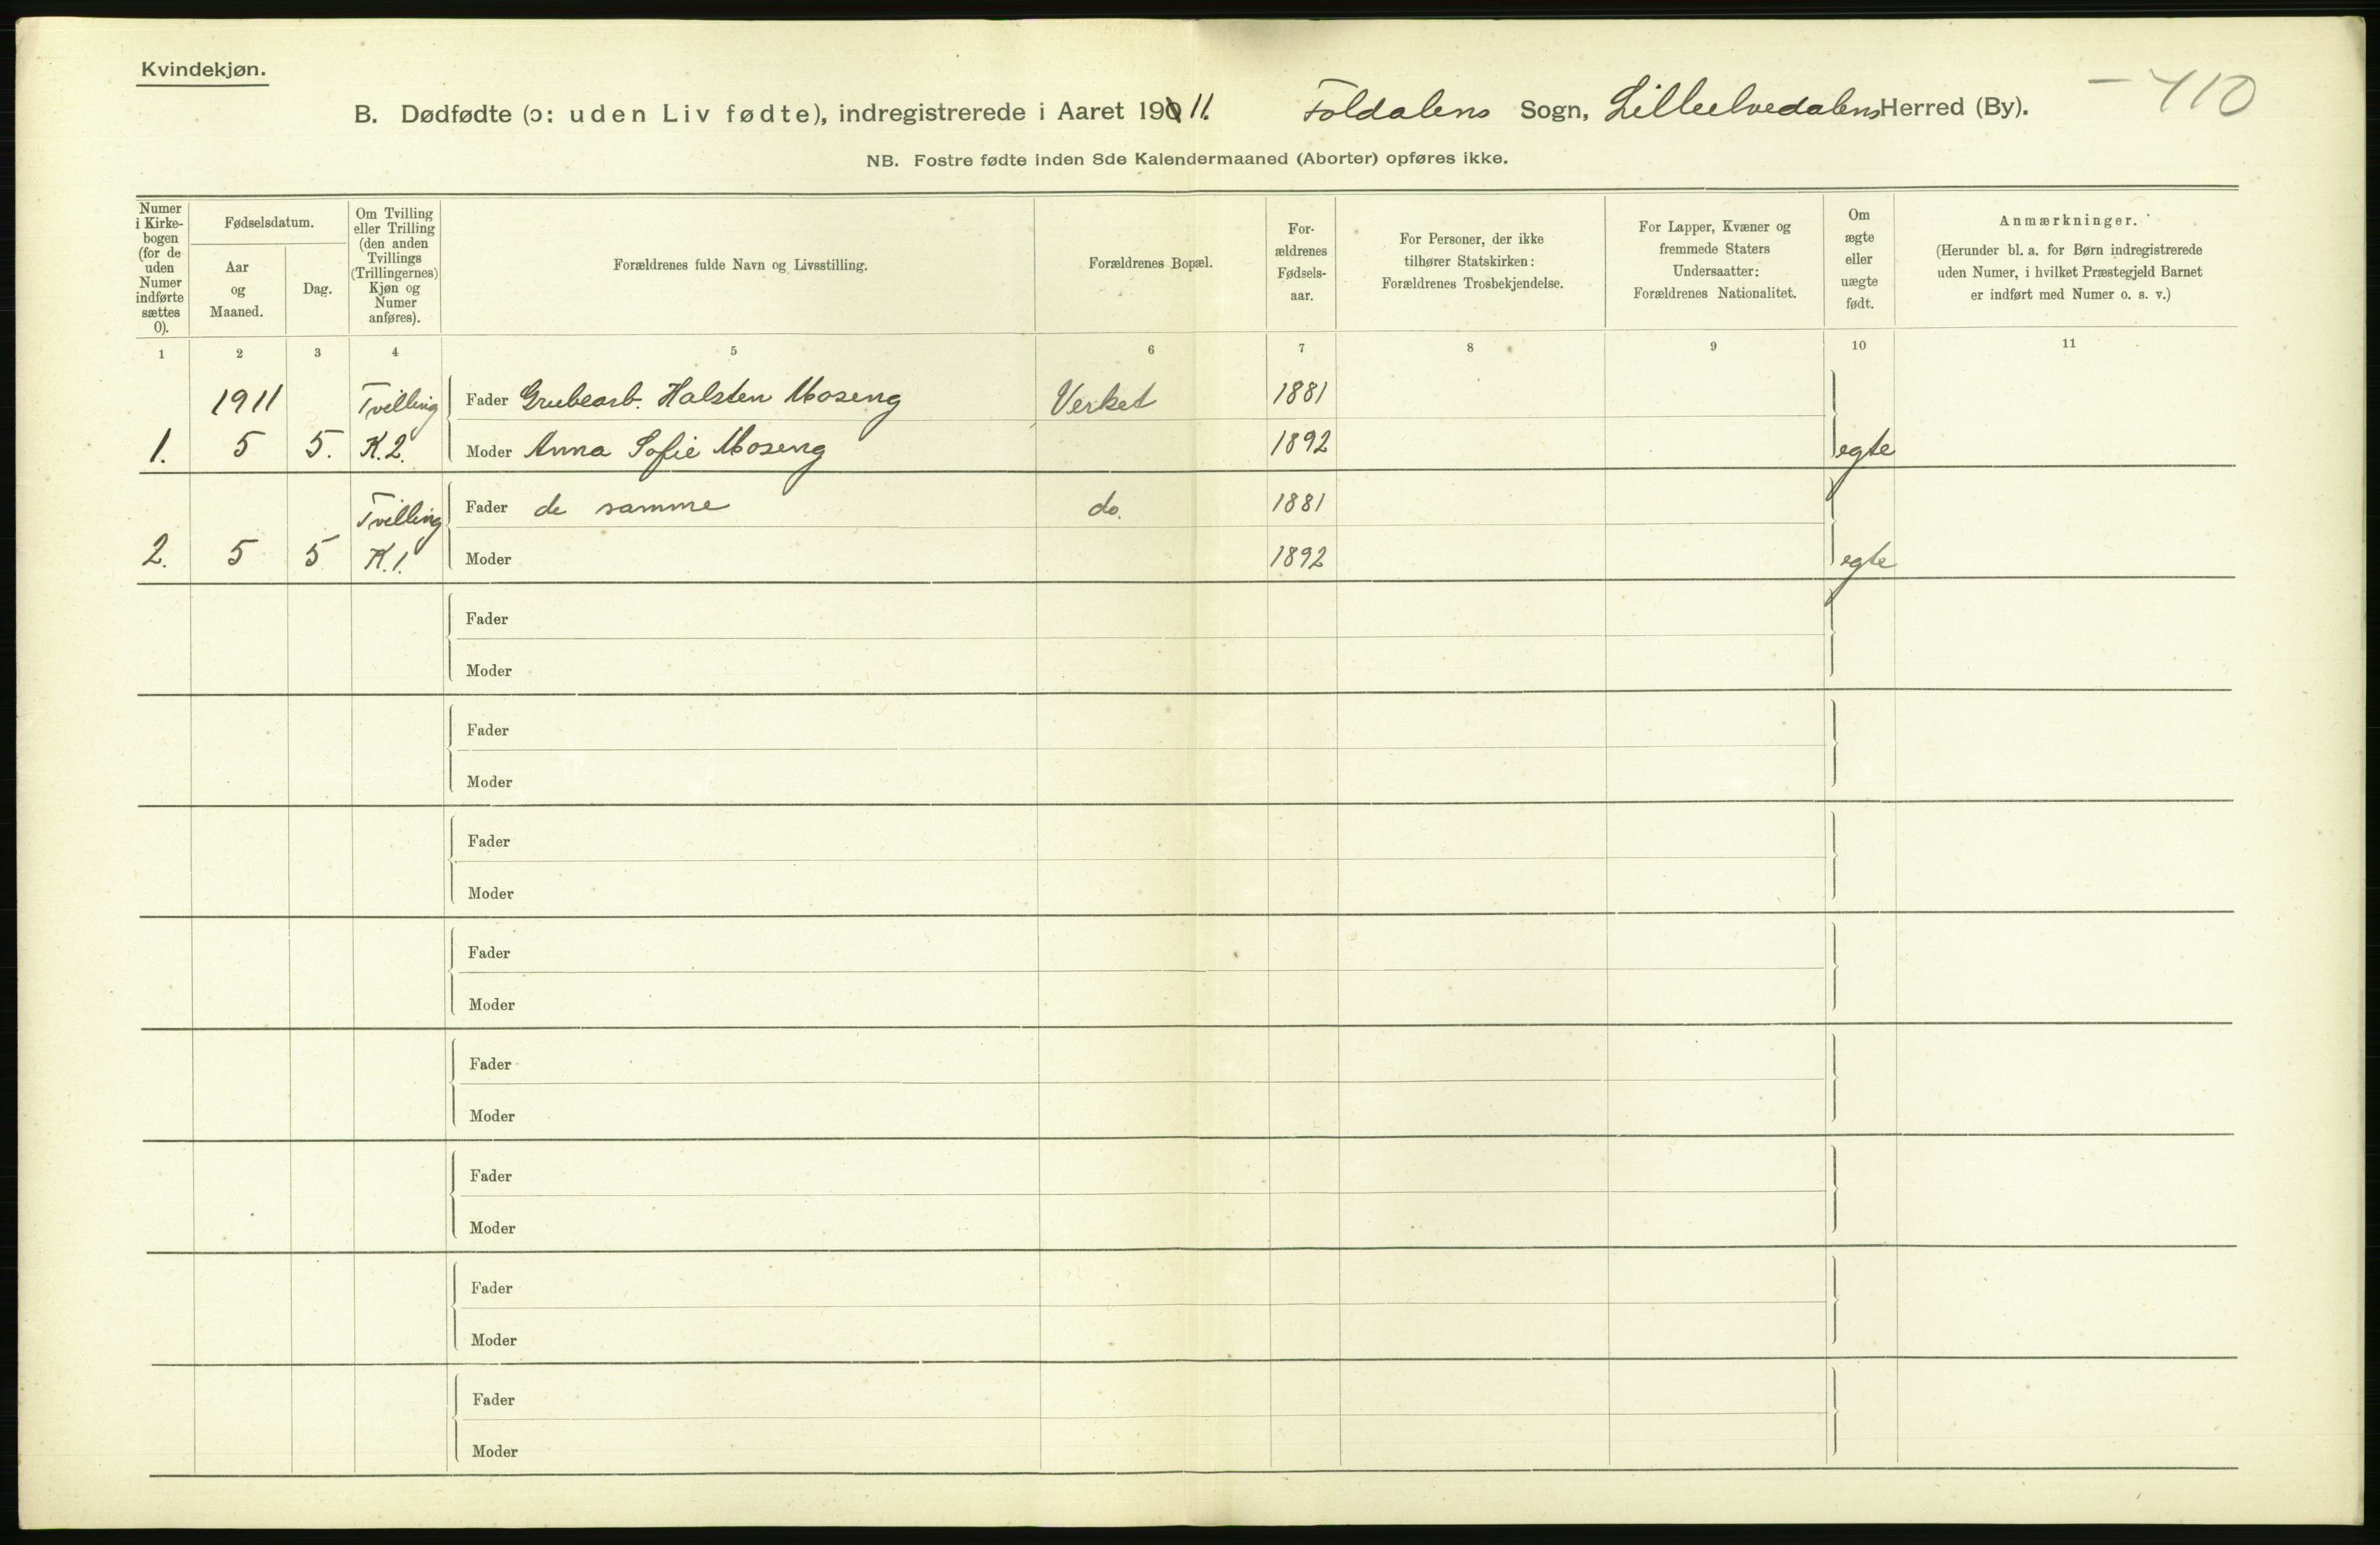 Kvindekjøn.
B. Dødfødte (ɔ: uden Liv fødte), indregistrerede i Aaret 1911. Foldalens Sogn, Lilleelvedalens Herred (By).
NB. Fostre fødte inden 8de Kalendermaaned (Aborter) opføres ikke.
Numer
i Kirke-
bogen
(for de
uden
Numer
indførte
sættes
0).
Fødselsdatum.
Aar
og
Maaned.
Dag.
Om Tvilling
eller Trilling
(den anden
Tvillings
(Trillingernes)
Kjøn og
Numer
anføres).
Forældrenes fulde Navn og Livsstilling.
Forældrenes Bopæl.
For-
ældrenes
Fødsels-
aar.
For Personer, der ikke
tilhører Statskirken:
Forældrenes Trosbekjendelse.
For Lapper, Kvæner og
fremmede Staters
Undersaatter:
Forældrenes Nationalitet.
Om
ægte
eller
uægte
født.
Anmærkninger.
(Herunder bl. a. for Børn indregistrerede
uden Numer, i hvilket Præstegjeld Barnet
er indført med Numer o. s. v.)
1 2 3 4 5 6 7 8 9 10 11
1911 Tvilling Fader Grubearb. Halsten Moseng Verket 1881
1. 5 5. K.2. Moder Anna Sofie Moseng 1892 egte
Tvilling Fader de samme do. 1881
2. 5 5 K.1. Moder 1892 egte
Fader
Moder
Fader
Moder
Fader
Moder
Fader
Moder
Fader
Moder
Fader
Moder
Fader
Moder
Fader
Moder